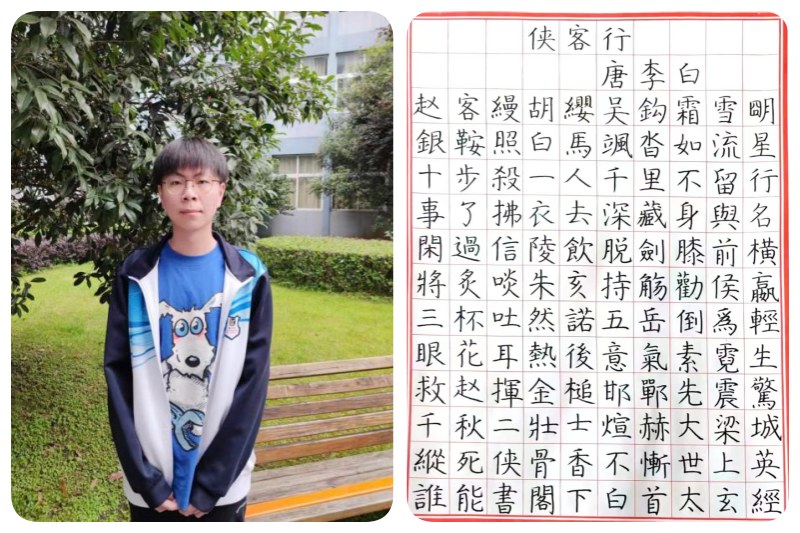 侠客行
唐李白
赵客縵胡纓吴鈎霜雪明
銀鞍照白馬颯沓如流星
十步殺一人千里不留行
事了拂衣去深藏身與名
閑過信陵飲脱劍膝前横
將炙啖朱亥持觞勸侯嬴
三杯吐然諾五岳倒爲輕
眼花耳熱後意氣素霓生
救赵揮金槌邯鄲先震驚
千秋二壯士煊赫大梁城
縱死侠骨香不慚世上英
誰能書閣下白首太玄經